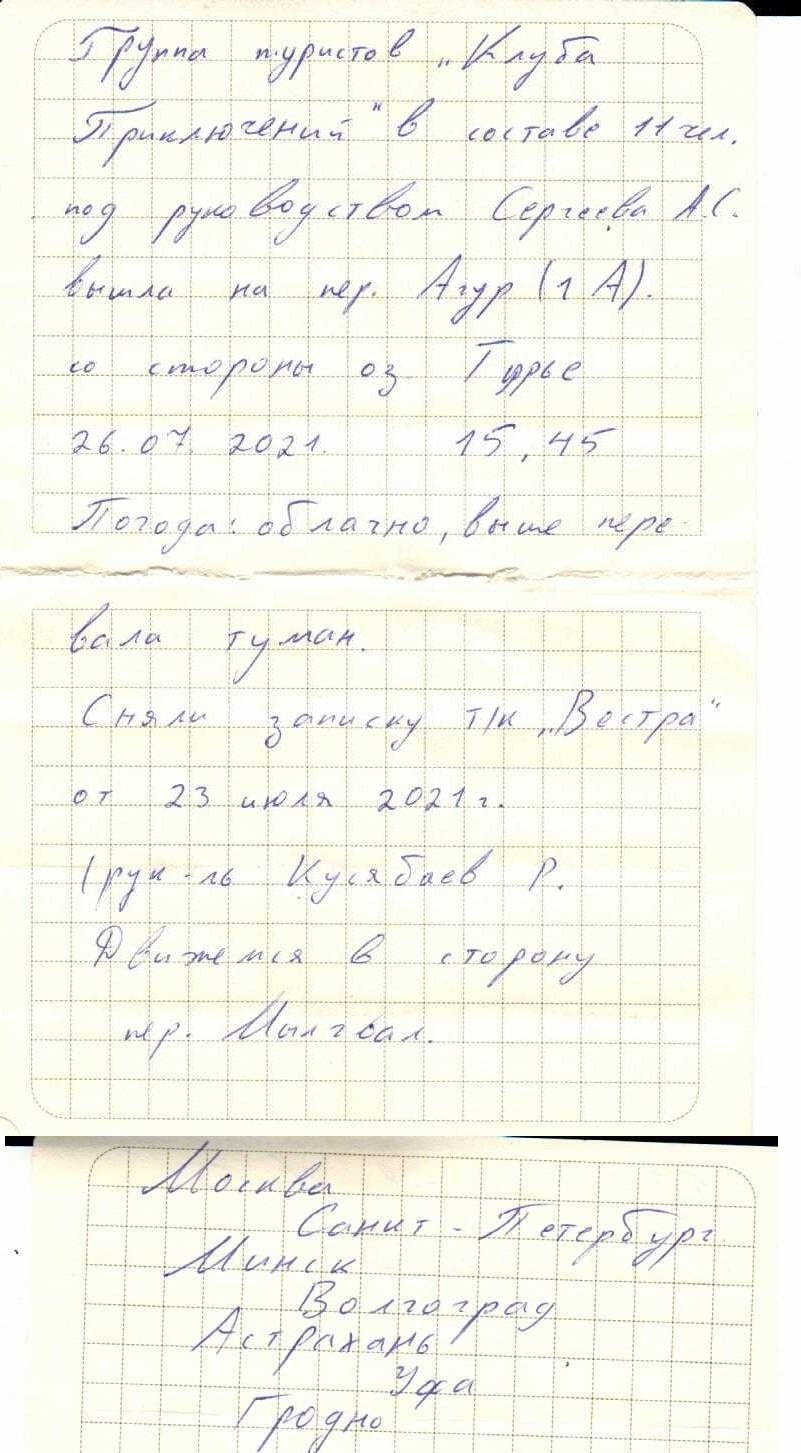 Группа туристов „Клуба
Приключений" в составе 11 чел.
под руководством Сергеева А.С.
вышла на пер. Агур (1 А).
со стороны оз
26.07. 2021. 15,45
Погода: облачно, выше пере-
вала туман.
Сняли записку т/к „Вестра"
от 23 июля 2021 г.
(рук-ль Кусябаев Р.
Движемся в сторону
пер. Мылгвал.
Москва
Санкт - Петербург
Минск
Волгоград
Астрахань
Уфа
Гродно